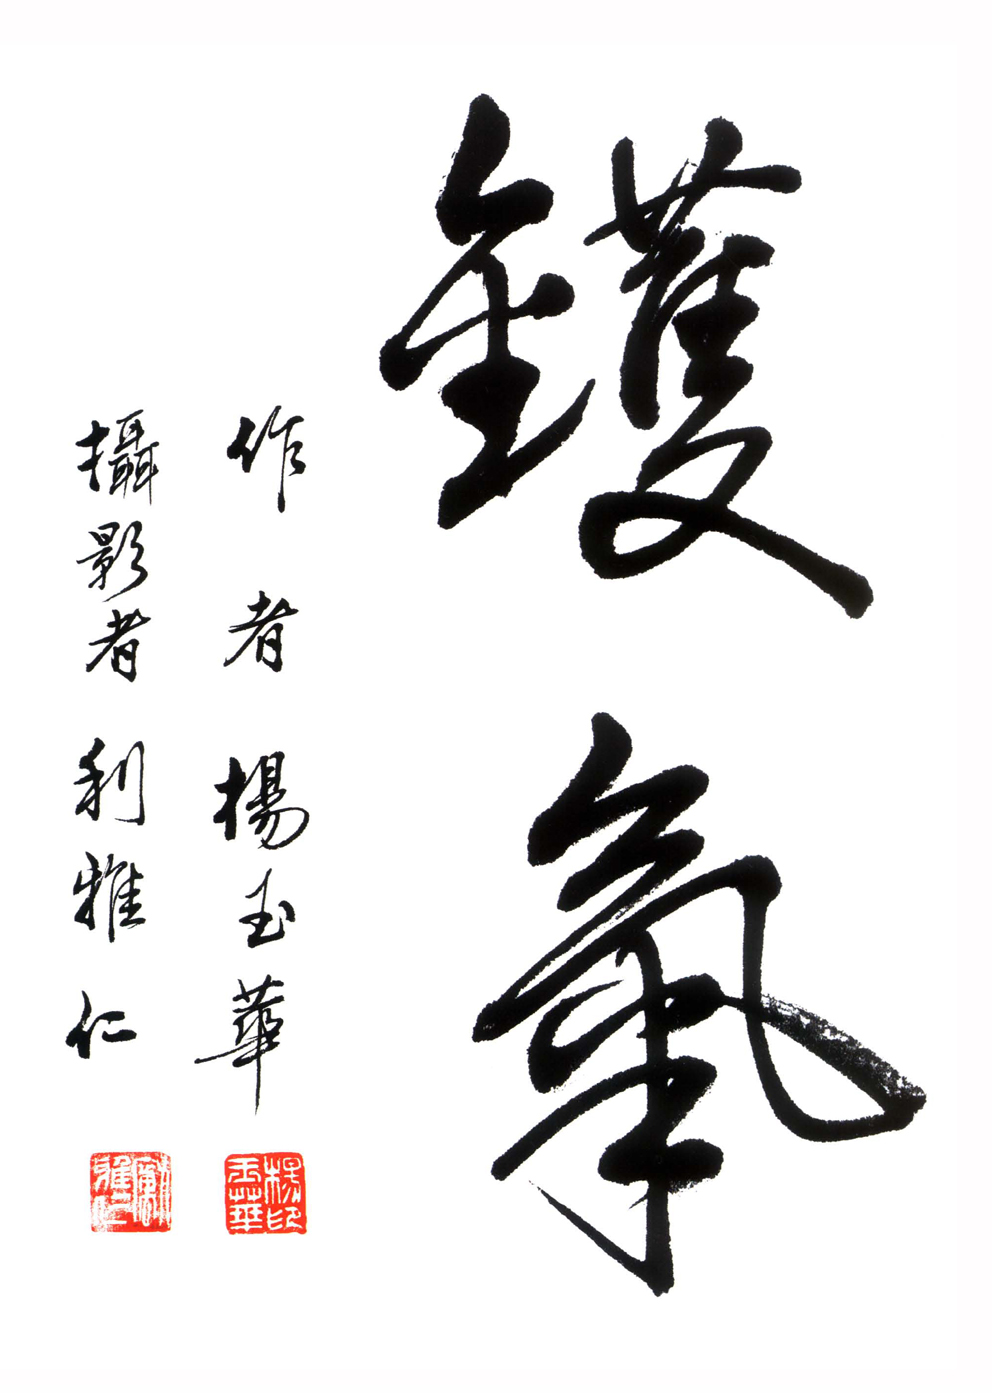 鑊氣
作者 楊玉華
攝影者 利雅仁
楊印
玉華
雅仁